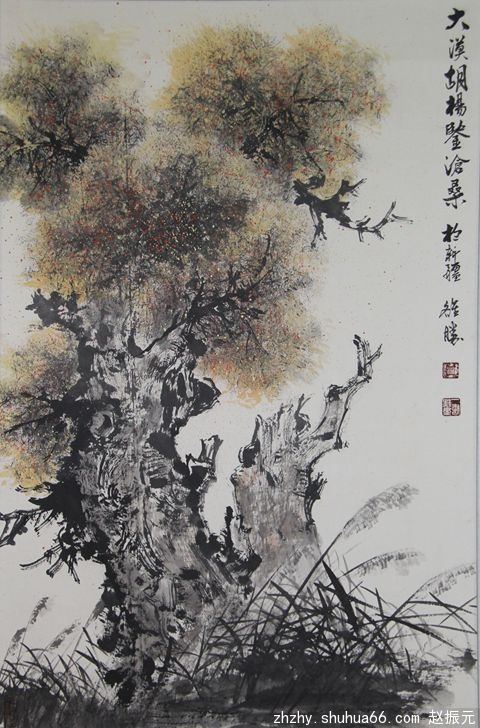 大漠胡楊鑒滄桑
於新疆
勝
zhzhy.shuhua66.com 赵振元